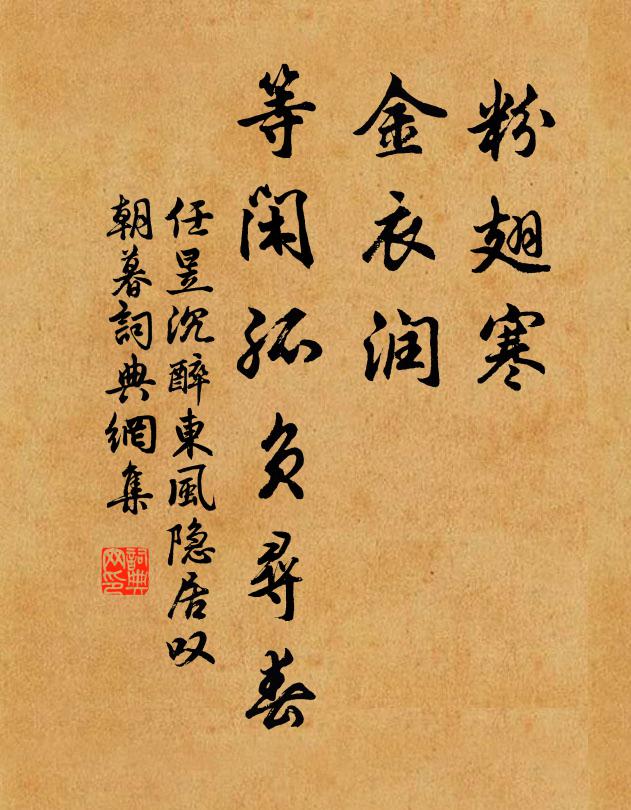 粉翅寒
金衣润
等闲孤负寻春
任昱沉醉东風隐居叹
朝暮詞典網集
詞典网印